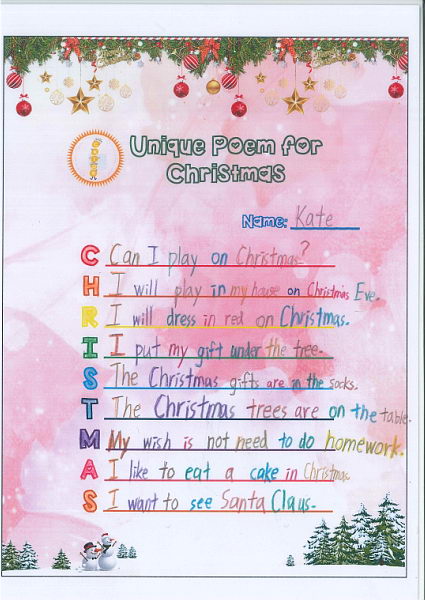 Unique Poem for
Christmas
Name: Kate
C Can I play on Christmas?
H I will play in my house on Christmas Eve.
R I will dress in red on Christmas.
I I put my gift under the tree.
S The Christmas gifts are in the socks.
T The Christmas trees are on the table.
M My wish is not need to do homework.
A I like to eat a cake in Christmas.
S I want to see Santa Claus.